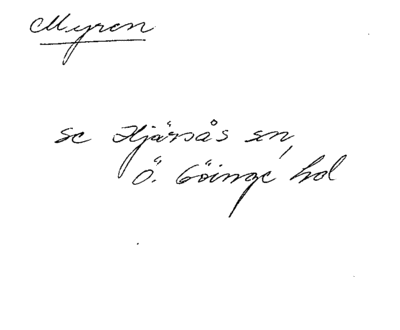 Myren
se Hjärsås sn,
Ö. Göinge hd